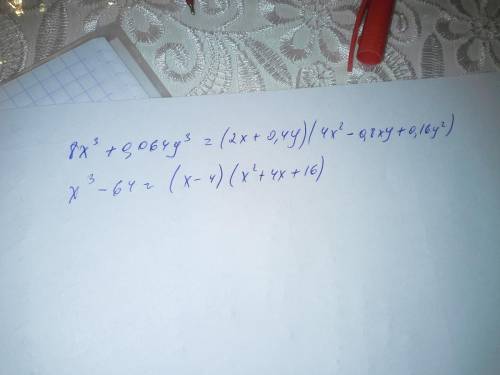 8x³ + 0,064y³ = (2x + 0,4y)(4x² - 0,8xy + 0,16y²)
x³ - 64 = (x - 4)(x² + 4x + 16)